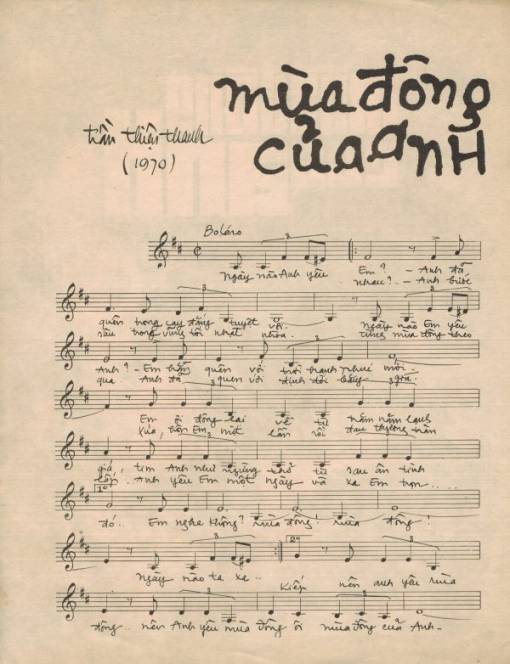 mùa đông
của anh
trần thiện thanh
(1970)
Boléro
Ngày nào Anh yêu Em? - Anh đã
nhau? - Anh biết
quên trong cay đắng tuyệt vời. Ngày nào Em yêu
sâu trong vũng tối nhạt nhòa. mùa đông theo
Anh? - Em quên với trời hạnh phúc mới.
qua Anh đã quen với đỉnh đời băng giá.
Em ơi đông lại về từ trăm năm lạnh
Xưa, hôn Em một lần rồi đau thương tràn
giá, tim Anh như ngừng thở từ sau ân tình
lấp. Anh yêu Em một ngày và xa Em trọn...
1º
đó.. Em nghe không? mùa đông! mùa đông!
2º
Ngày nào ta xa.. Kiếp nên anh yêu mùa
đông.. nên Anh yêu mùa Đông ôi mùa đông của Anh-